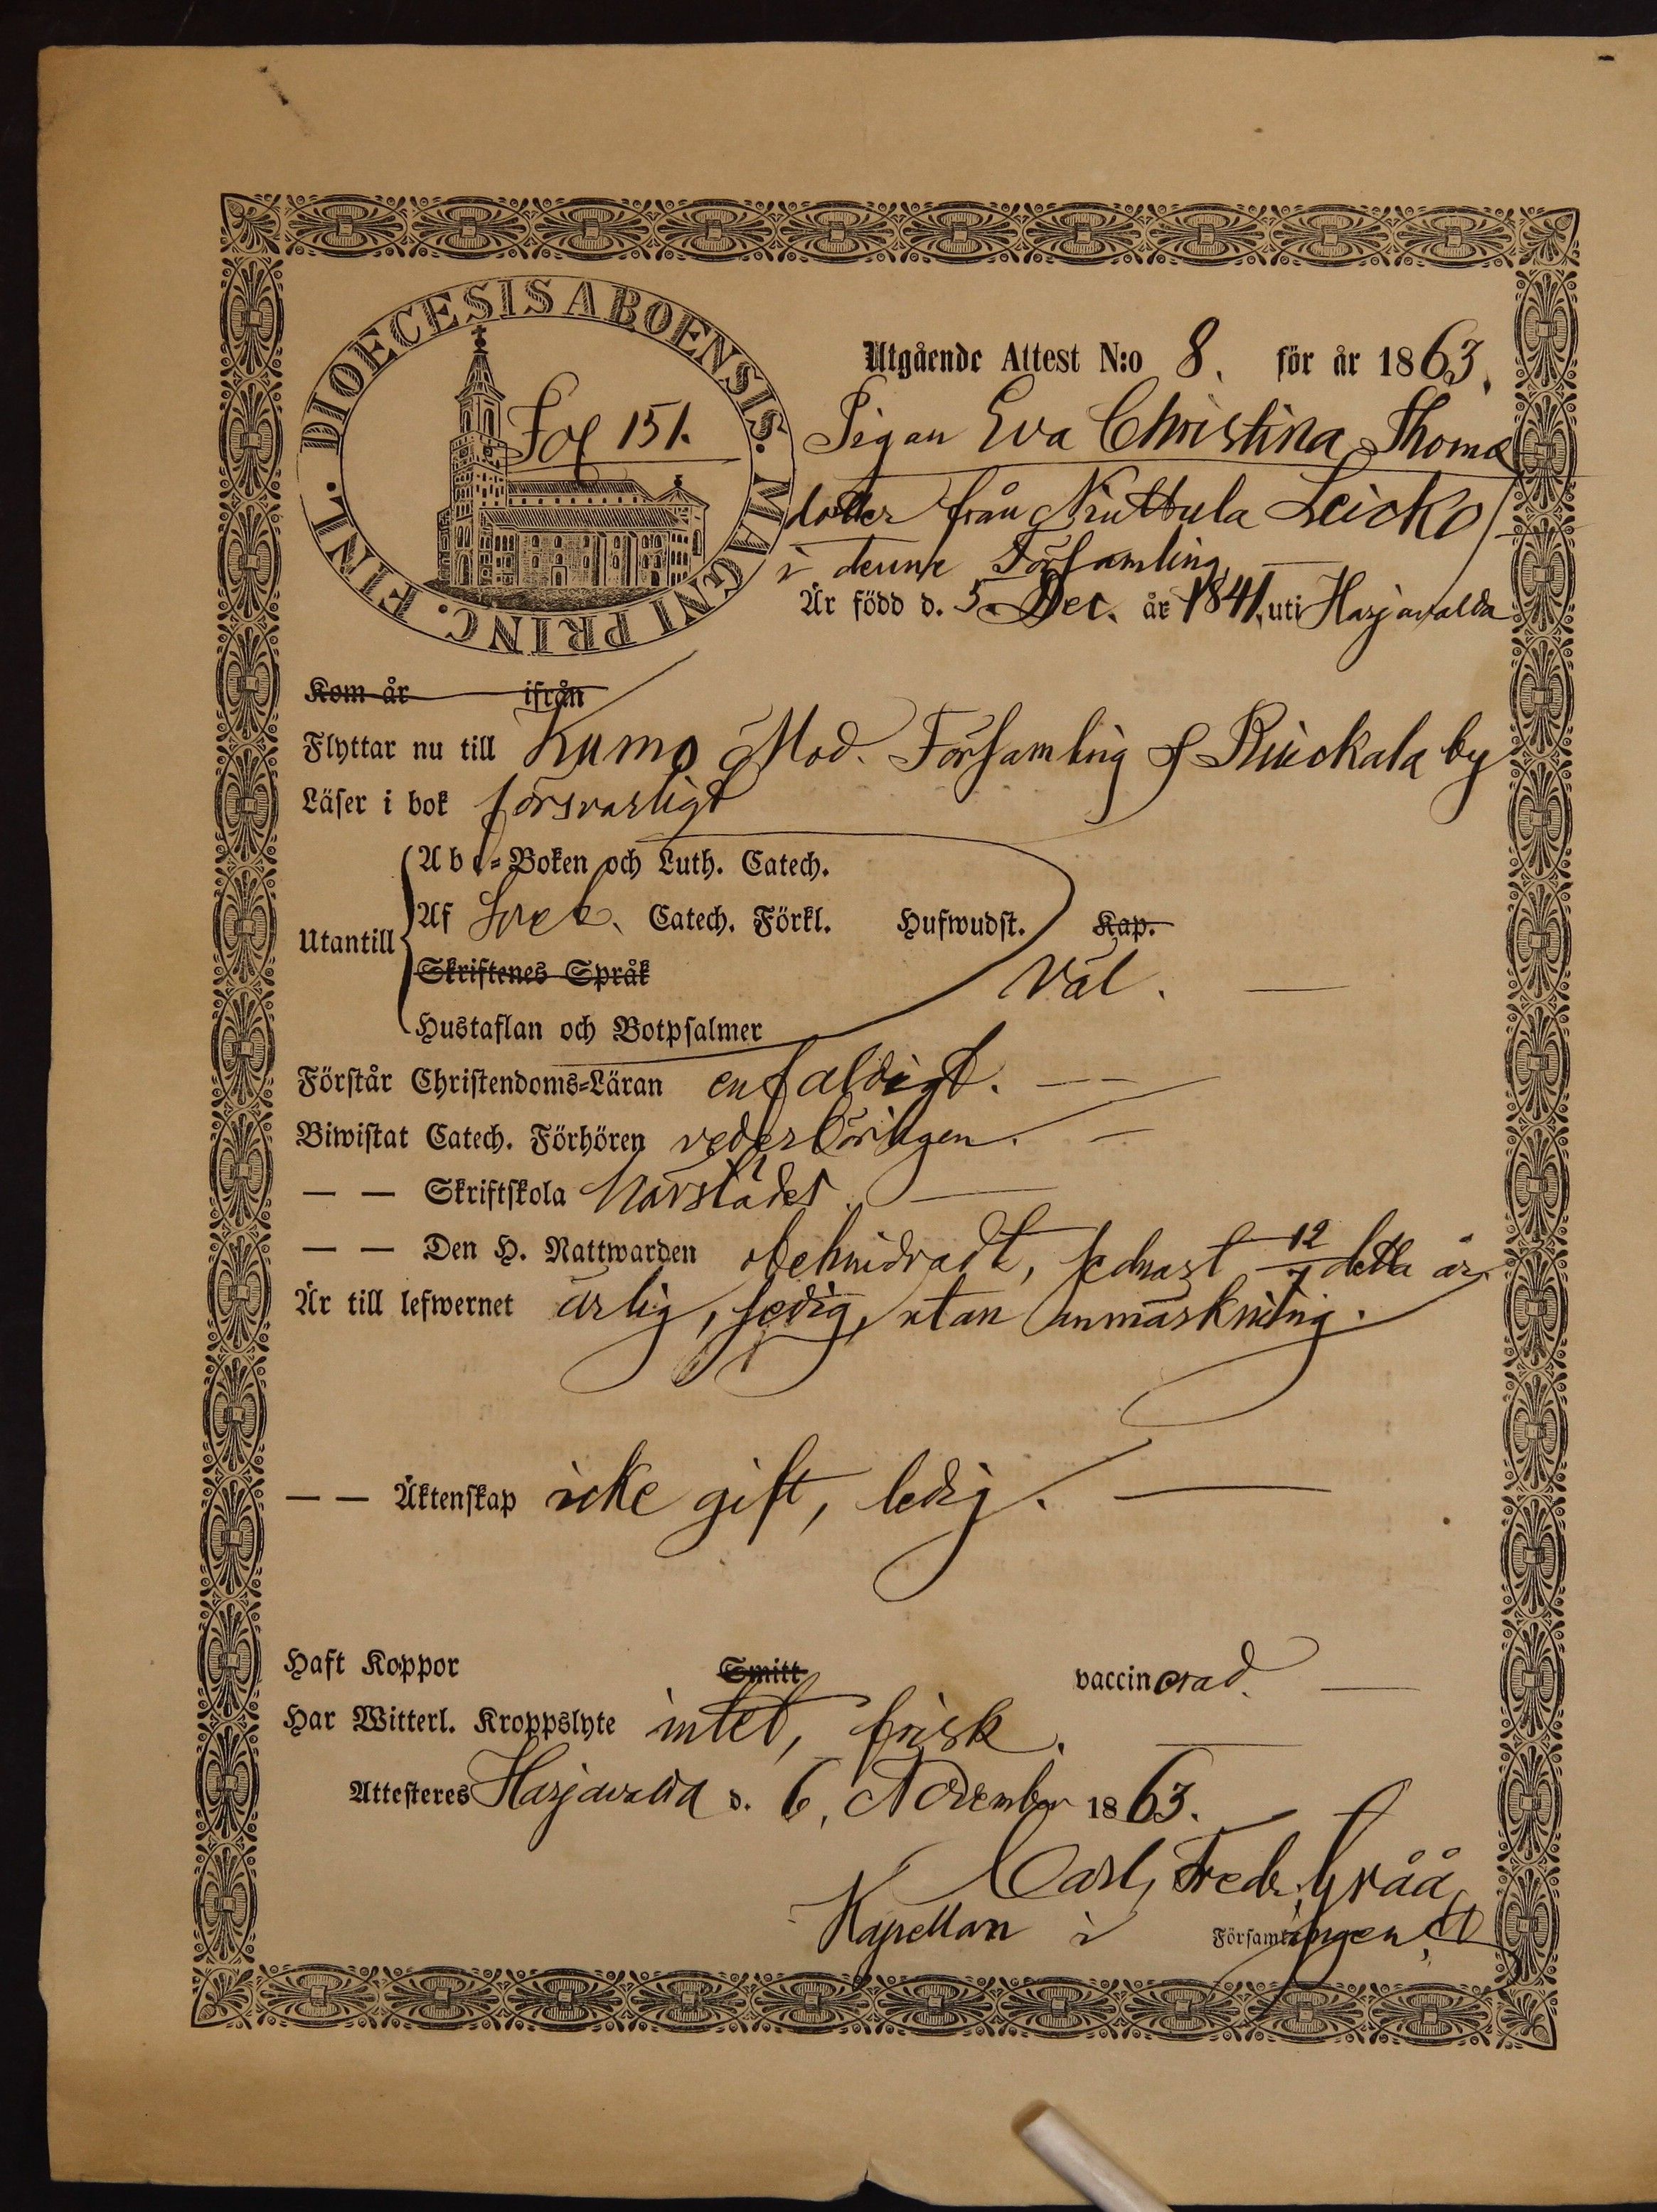 DIOECESIS ABOENSIS. MAGNI PRINC. FINL.
Fol 151.
Utgående Attest N:o 8. för år 1863.
Pigan Eva Christina Thomæ
dotter från Niuttula Leicko
i denne Församling
Är född d. 5. Dec. år 1841, uti Harjavalda
Kom år ifrån
Flyttar nu till Kumo Mod. Församling &
 by
Läser i bok försvarligt
Abc-Boken och Luth. Catech.
Utantill
Af Sveb. Catech. Förkl. Hufwudst. Kap.
Skriftenes Språk
Väl.
Hustaflan och Botpsalmer
Förstår Christendoms-Läran enfaldigt.
Biwistat Catech. Förhören vederbörligen.
— — Skriftskola härstädes.
— — Den H. Nattwarden obehindradt, sednast 12/7 detta år.
Är till lefwernet ärlig, sedig, utan anmärkning.
— — Äktenskap icke gift, ledig.
Haft Koppor Smitt vaccinerad.
Har Witterl. Kroppslyte intet, frisk.
Attesteres Harjavalda d. 6. November 1863.
Carl Fredr. Gråå
Kapellan i Församlingen